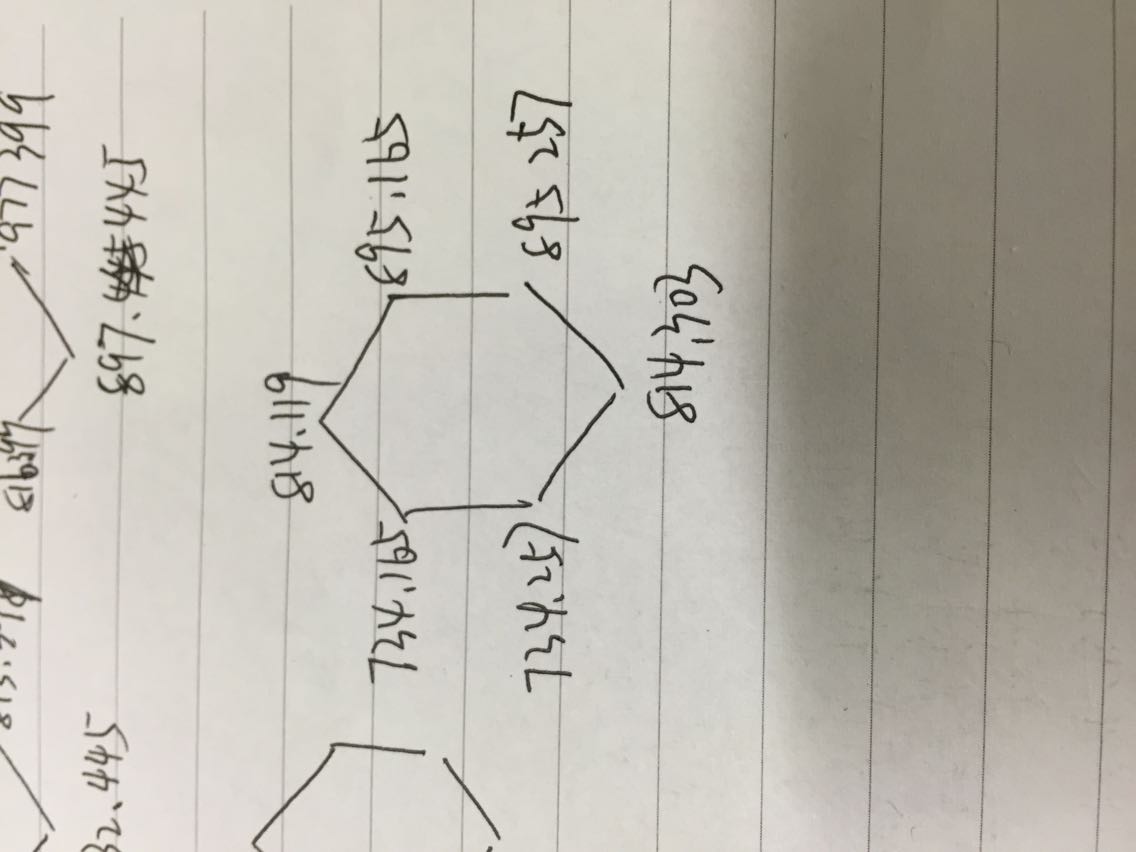 816399 977399
32.445 897.445
814.119
734.165 895.165
734.257 895 257
814,303